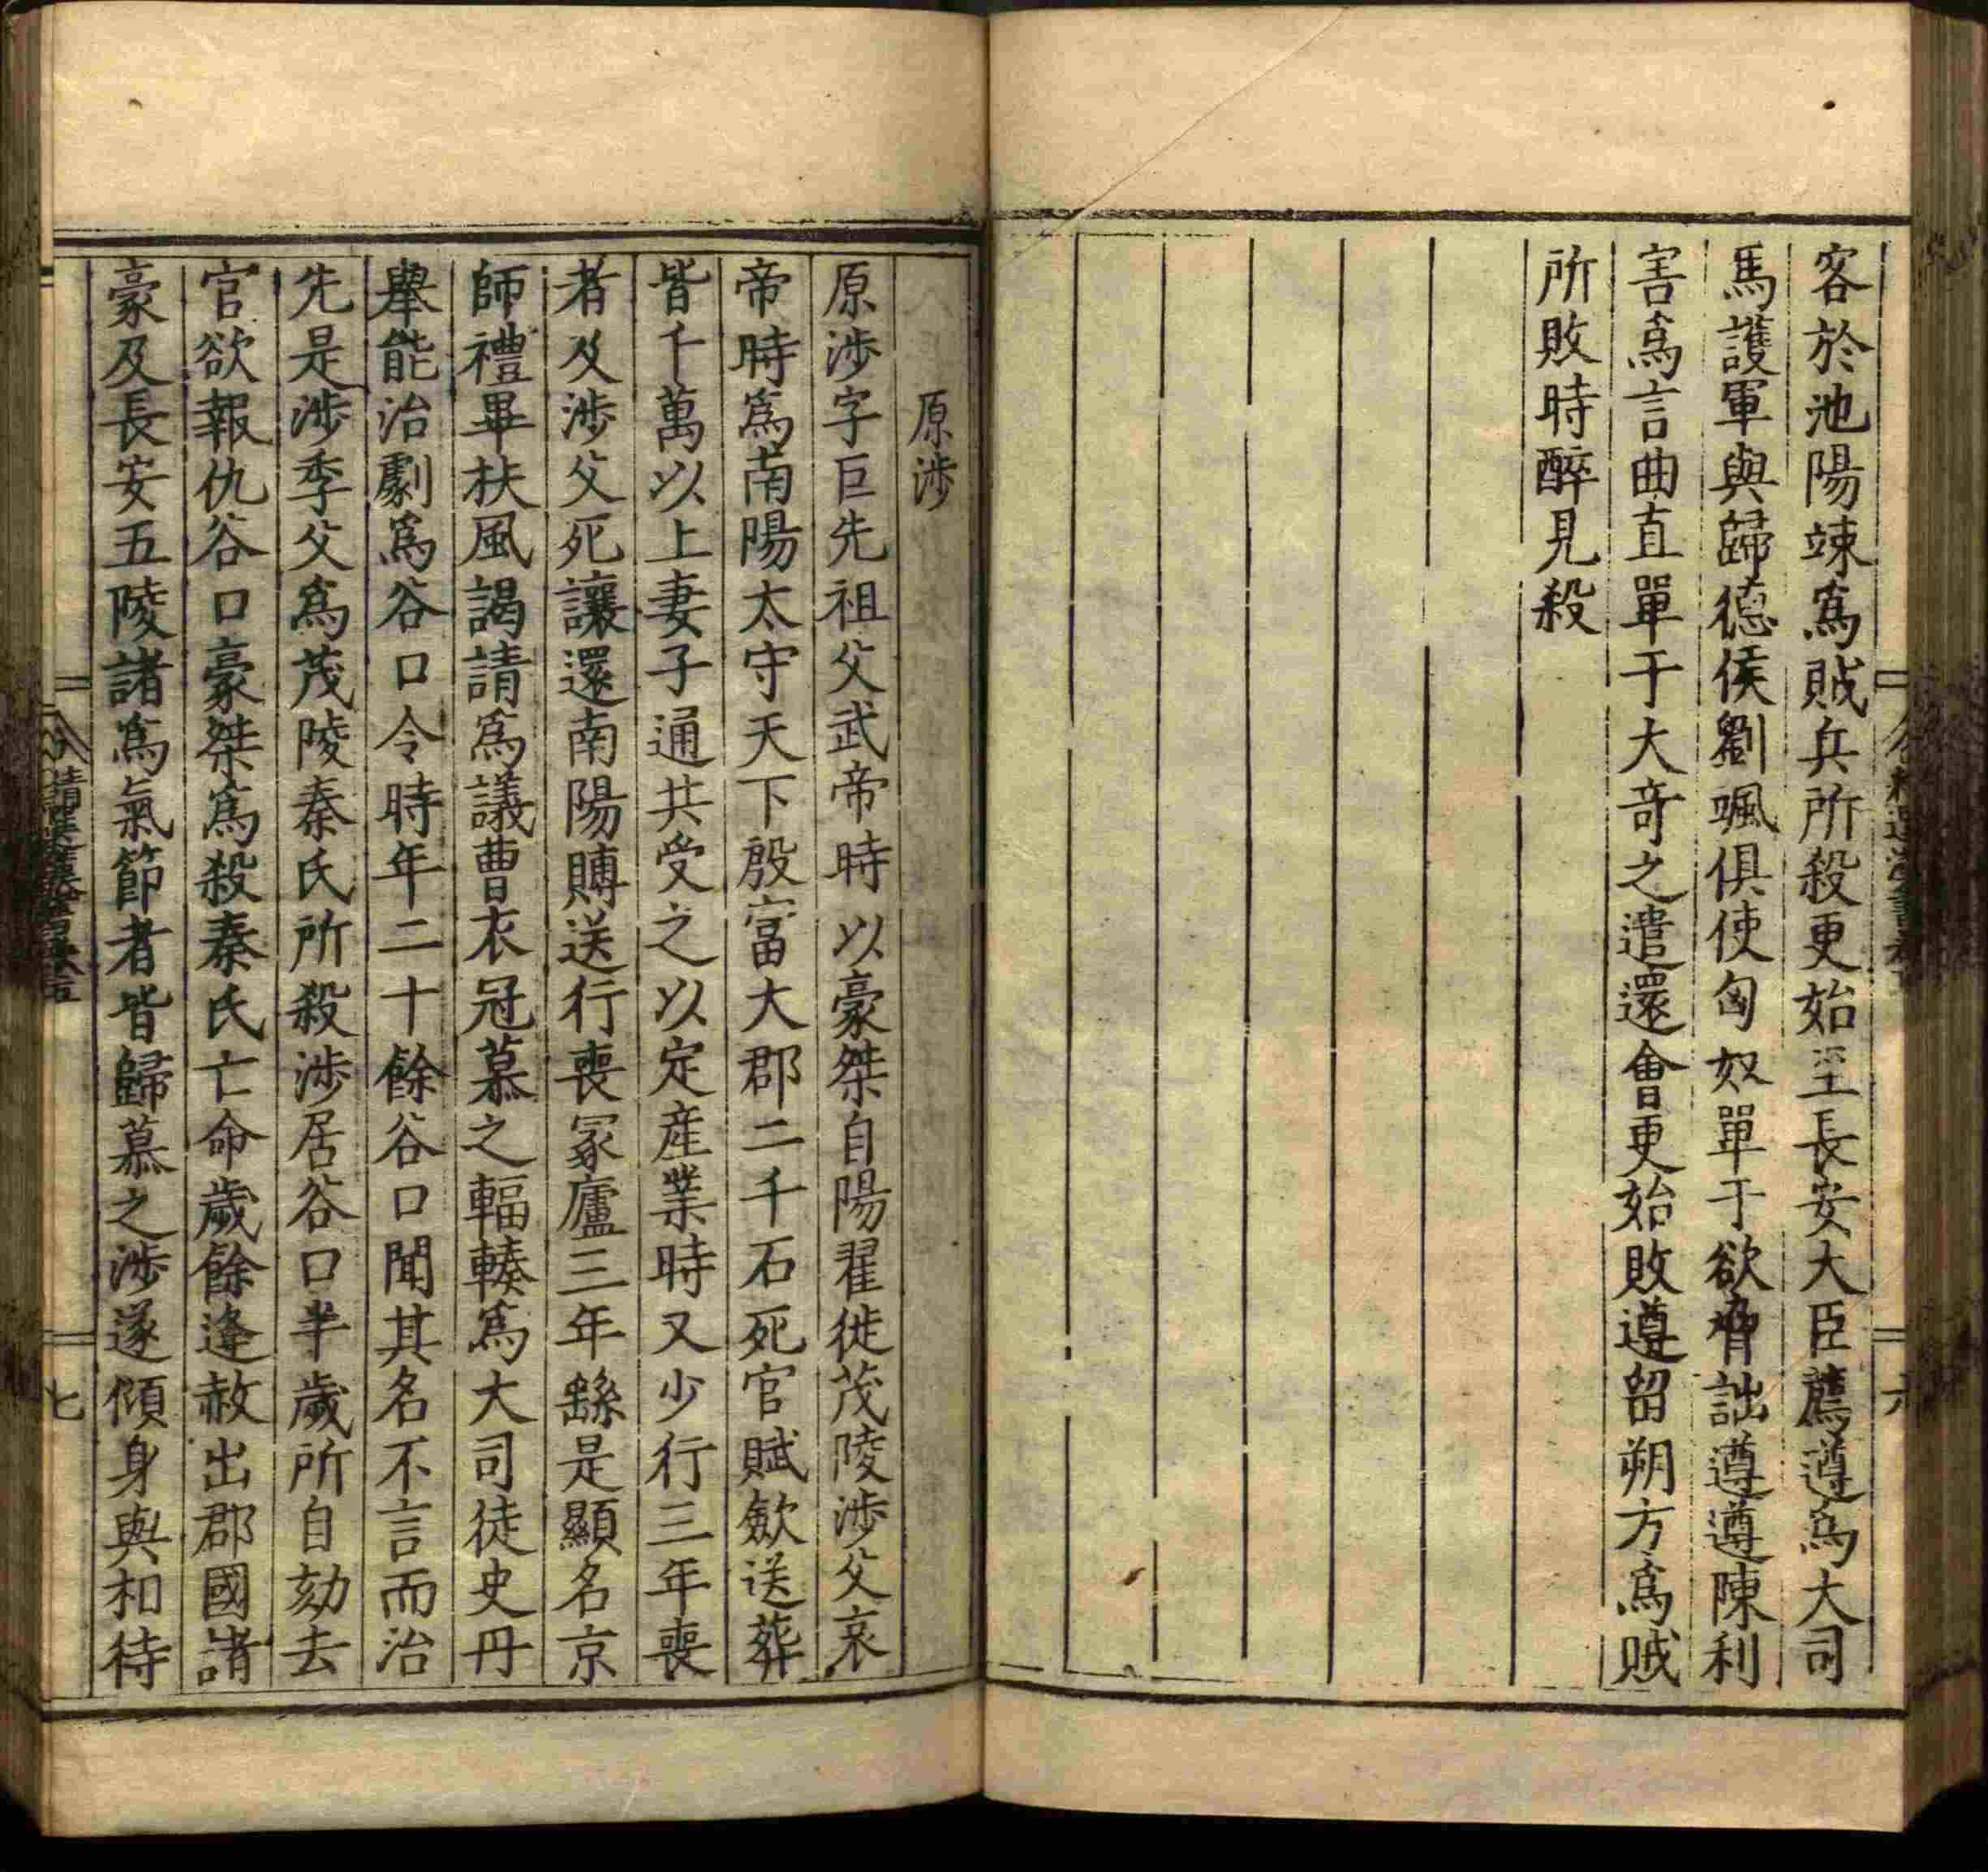 客於池陽竦爲賊兵所殺更始至長安大臣薦遵爲大司
馬護軍與歸德侯劉颯俱使匈奴單于欲脅詘遵遵陳利
害爲言曲直單于大奇之遣還會更始敗遵留朔方爲賊
所敗時醉見殺
六
原涉
原涉字巨先祖父武帝時以豪桀自陽翟徙茂陵涉父哀
帝時爲南陽太守天下殷富大郡二千石死官賦斂送葬
皆千萬以上妻子通共受之以定産業時又少行三年喪
者及涉父死讓還南陽賻送行喪冢廬三年繇是顯名京
師禮畢扶風謁請爲議曹衣冠慕之輻輳爲大司徒史丹
舉能治劇爲谷口令時年二十餘谷口聞其名不言而治
先是涉季父爲茂陵秦氏所殺涉居谷口半歲所自劾去
官欲報仇谷口豪桀爲殺秦氏亡命歲餘逢赦出郡國諸
豪及長安五陵諸爲氣節者皆歸慕之涉遂傾身與相待
七